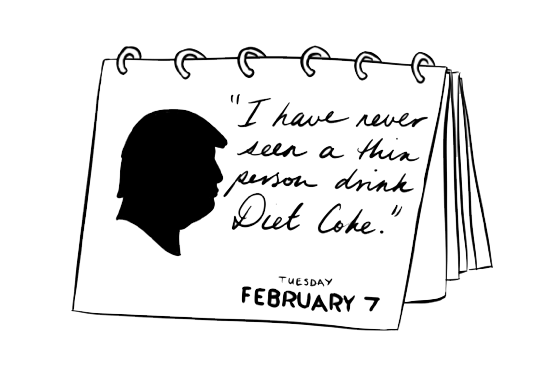 "I have never
seen a thin
person drink
Diet Coke."
TUESDAY
FEBRUARY 7